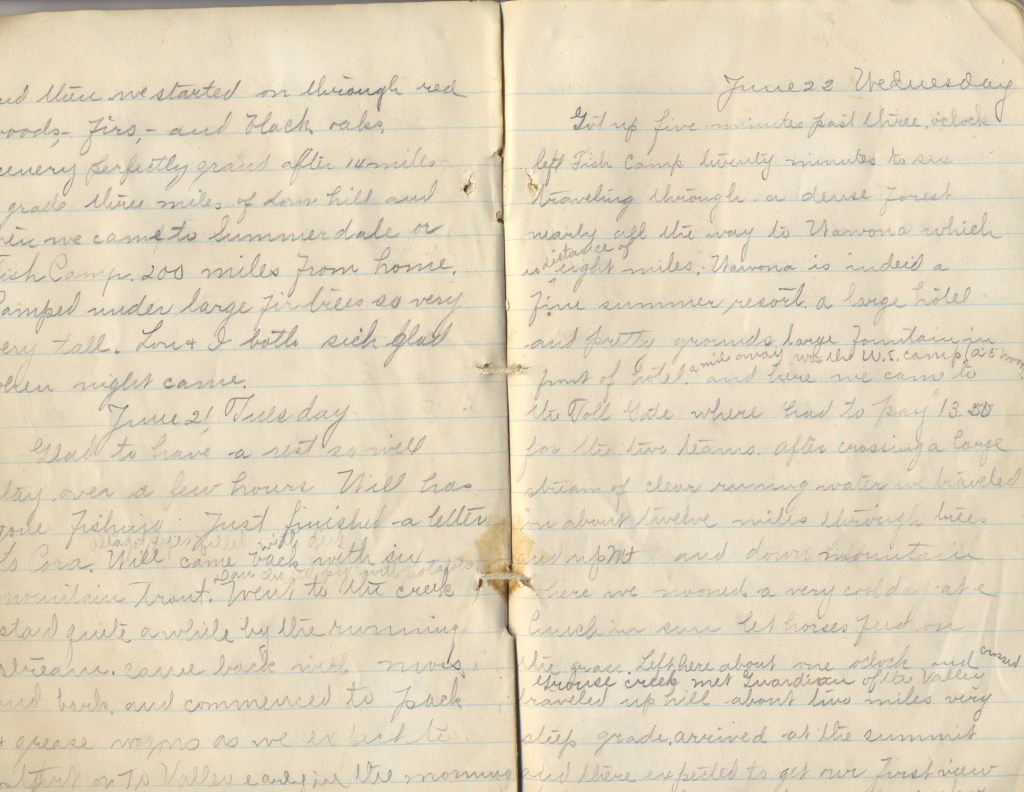 and then we started on through red
woods,- firs,- and black oaks.
scenery perfectly grand after 14 miles
grade three miles of down hill and
then we came to Summerdale or
Fish Camp. 200 miles from home.
Camped under large fir trees so very
very tall. Lou & I both sick glad
when night came.
June 21 Tuesday
Glad to have a rest so will
stay over a few hours Will has
gone fishing. Just finished a letter
to Cora. Will came back with six
mountain trout. Went to the creek
staid quite a while by the running
stream. came back with moss
and bark. and commenced to pack
& grease wagons as we expect to
start on to Valley early in the morning
June 22 Wednesday
Got up five minutes past three, oclock
left Fish Camp twenty minutes to six
traveling through a dense forest
nearly all the way to Wawona which
distance of
is eight miles. Wawona is indeed a
fine summer resort. a large hotel
and pretty grounds large fountain in
a mile away was the U.S. camp,
front of hotel. and here we came to
the Toll Gate where had to pay 13.50
for the two teams. after crossing a large
stream of clear running water we traveled
on about twelve miles through trees
and up Mt and down mountain
here we nooned a very cool day at
lunch in sun let horses feed on
the grass. Left here about one oclock and crossed
Grouse creek met Guardian of the Valley
traveled up hill about two miles very
steep grade. arrived at the summit
and there expected to get our first view